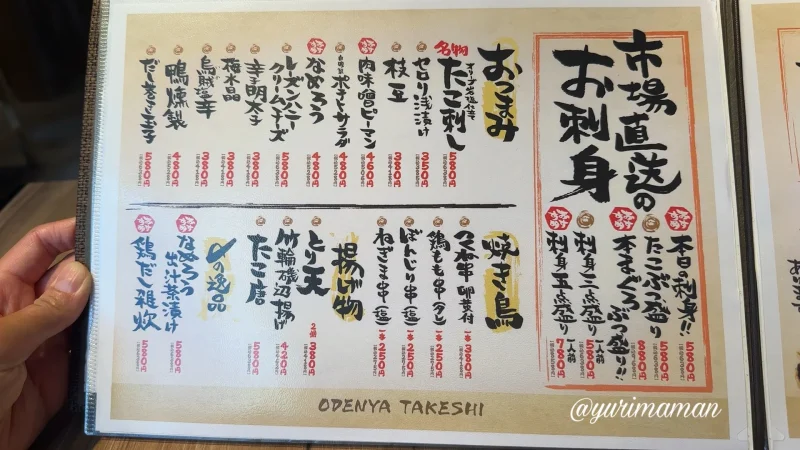 市場直送の
お刺身
本日の刺身!! 580円
たこぶつ盛り 580円
本まぐろぶつ盛り!! 880円
刺身三点盛り 一人前 580円
刺身五点盛り 一人前 780円
おつまみ
名物 たこ刺し 580円
セロリ浅漬け 350円
枝豆 380円
肉味噌ピーマン 460円
ポテトサラダ 480円
なめろう 480円
レーズンハニークリームチーズ 580円
辛子明太子 380円
梅水晶 380円
烏賊塩辛 380円
鴨燻製 480円
だし巻き玉子 580円
焼き鳥
つくね串 卵黄付 一本 380円
鶏もも串(タレ) 一本 250円
ぼんじり串(塩) 一本 250円
ねぎま串(塩) 一本 250円
揚げ物
とり天 2個 380円
竹輪磯辺揚げ 420円
たこ唐 580円
〆の逸品
なめろう出汁茶漬け 580円
鶏だし雑炊 580円
ODENYA TAKESHI
@yurimaman